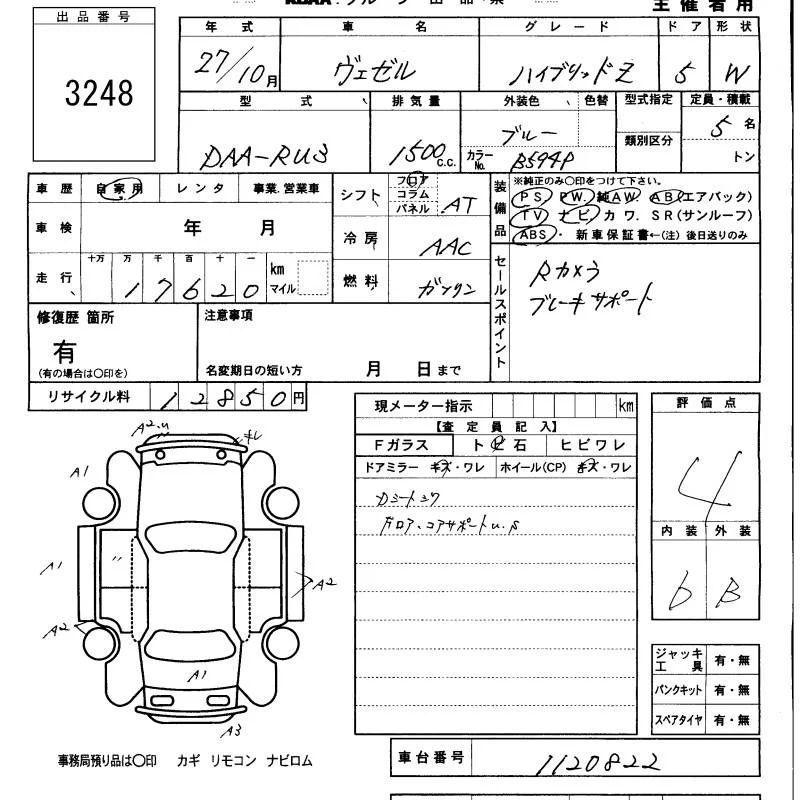 主催者用
出品番号
3248
年式 車名 グレード ドア 形状
27/10月 ヴェゼル ハイブリッドZ 5 W
型式 排気量 外装色 色替 型式指定 定員・積載
DAA-RU3 1500c.c. ブルー 5名
カラーNo. B594P 類別区分 トン
車歴 自家用 レンタ 事業.営業車
車検 年 月
走行 十万 万 千 百 十 一 km マイル
17620
シフト フロア コラム パネル AT
冷房 AAC
燃料 ガソリン
装備品 ※純正のみ○印をつけて下さい。
PS PW. 純AW. AB(エアバック)
TV ナビ.カワ.SR(サンルーフ)
ABS・新車保証書←(注)後日送りのみ
セールスポイント
Rカメラ
ブレーキサポート
修復歴 箇所
有
(有の場合は○印を)
注意事項
名変期日の短い方 月 日まで
リサイクル料 12850円
現メーター指示 km
【査定員記入】
Fガラス ト石 ヒビワレ
ドアミラー キズ・ワレ ホイール(CP) キズ・ワレ
フロア、コアサポートu.S
評価点
4
内装 外装
b B
ジャッキ工具 有・無
パンクキット 有・無
スペアタイヤ 有・無
A2.u キレ
A1
A1
A2
A2
A1
A3
事務局預り品は○印 カギ リモコン ナビロム
車台番号 1120822